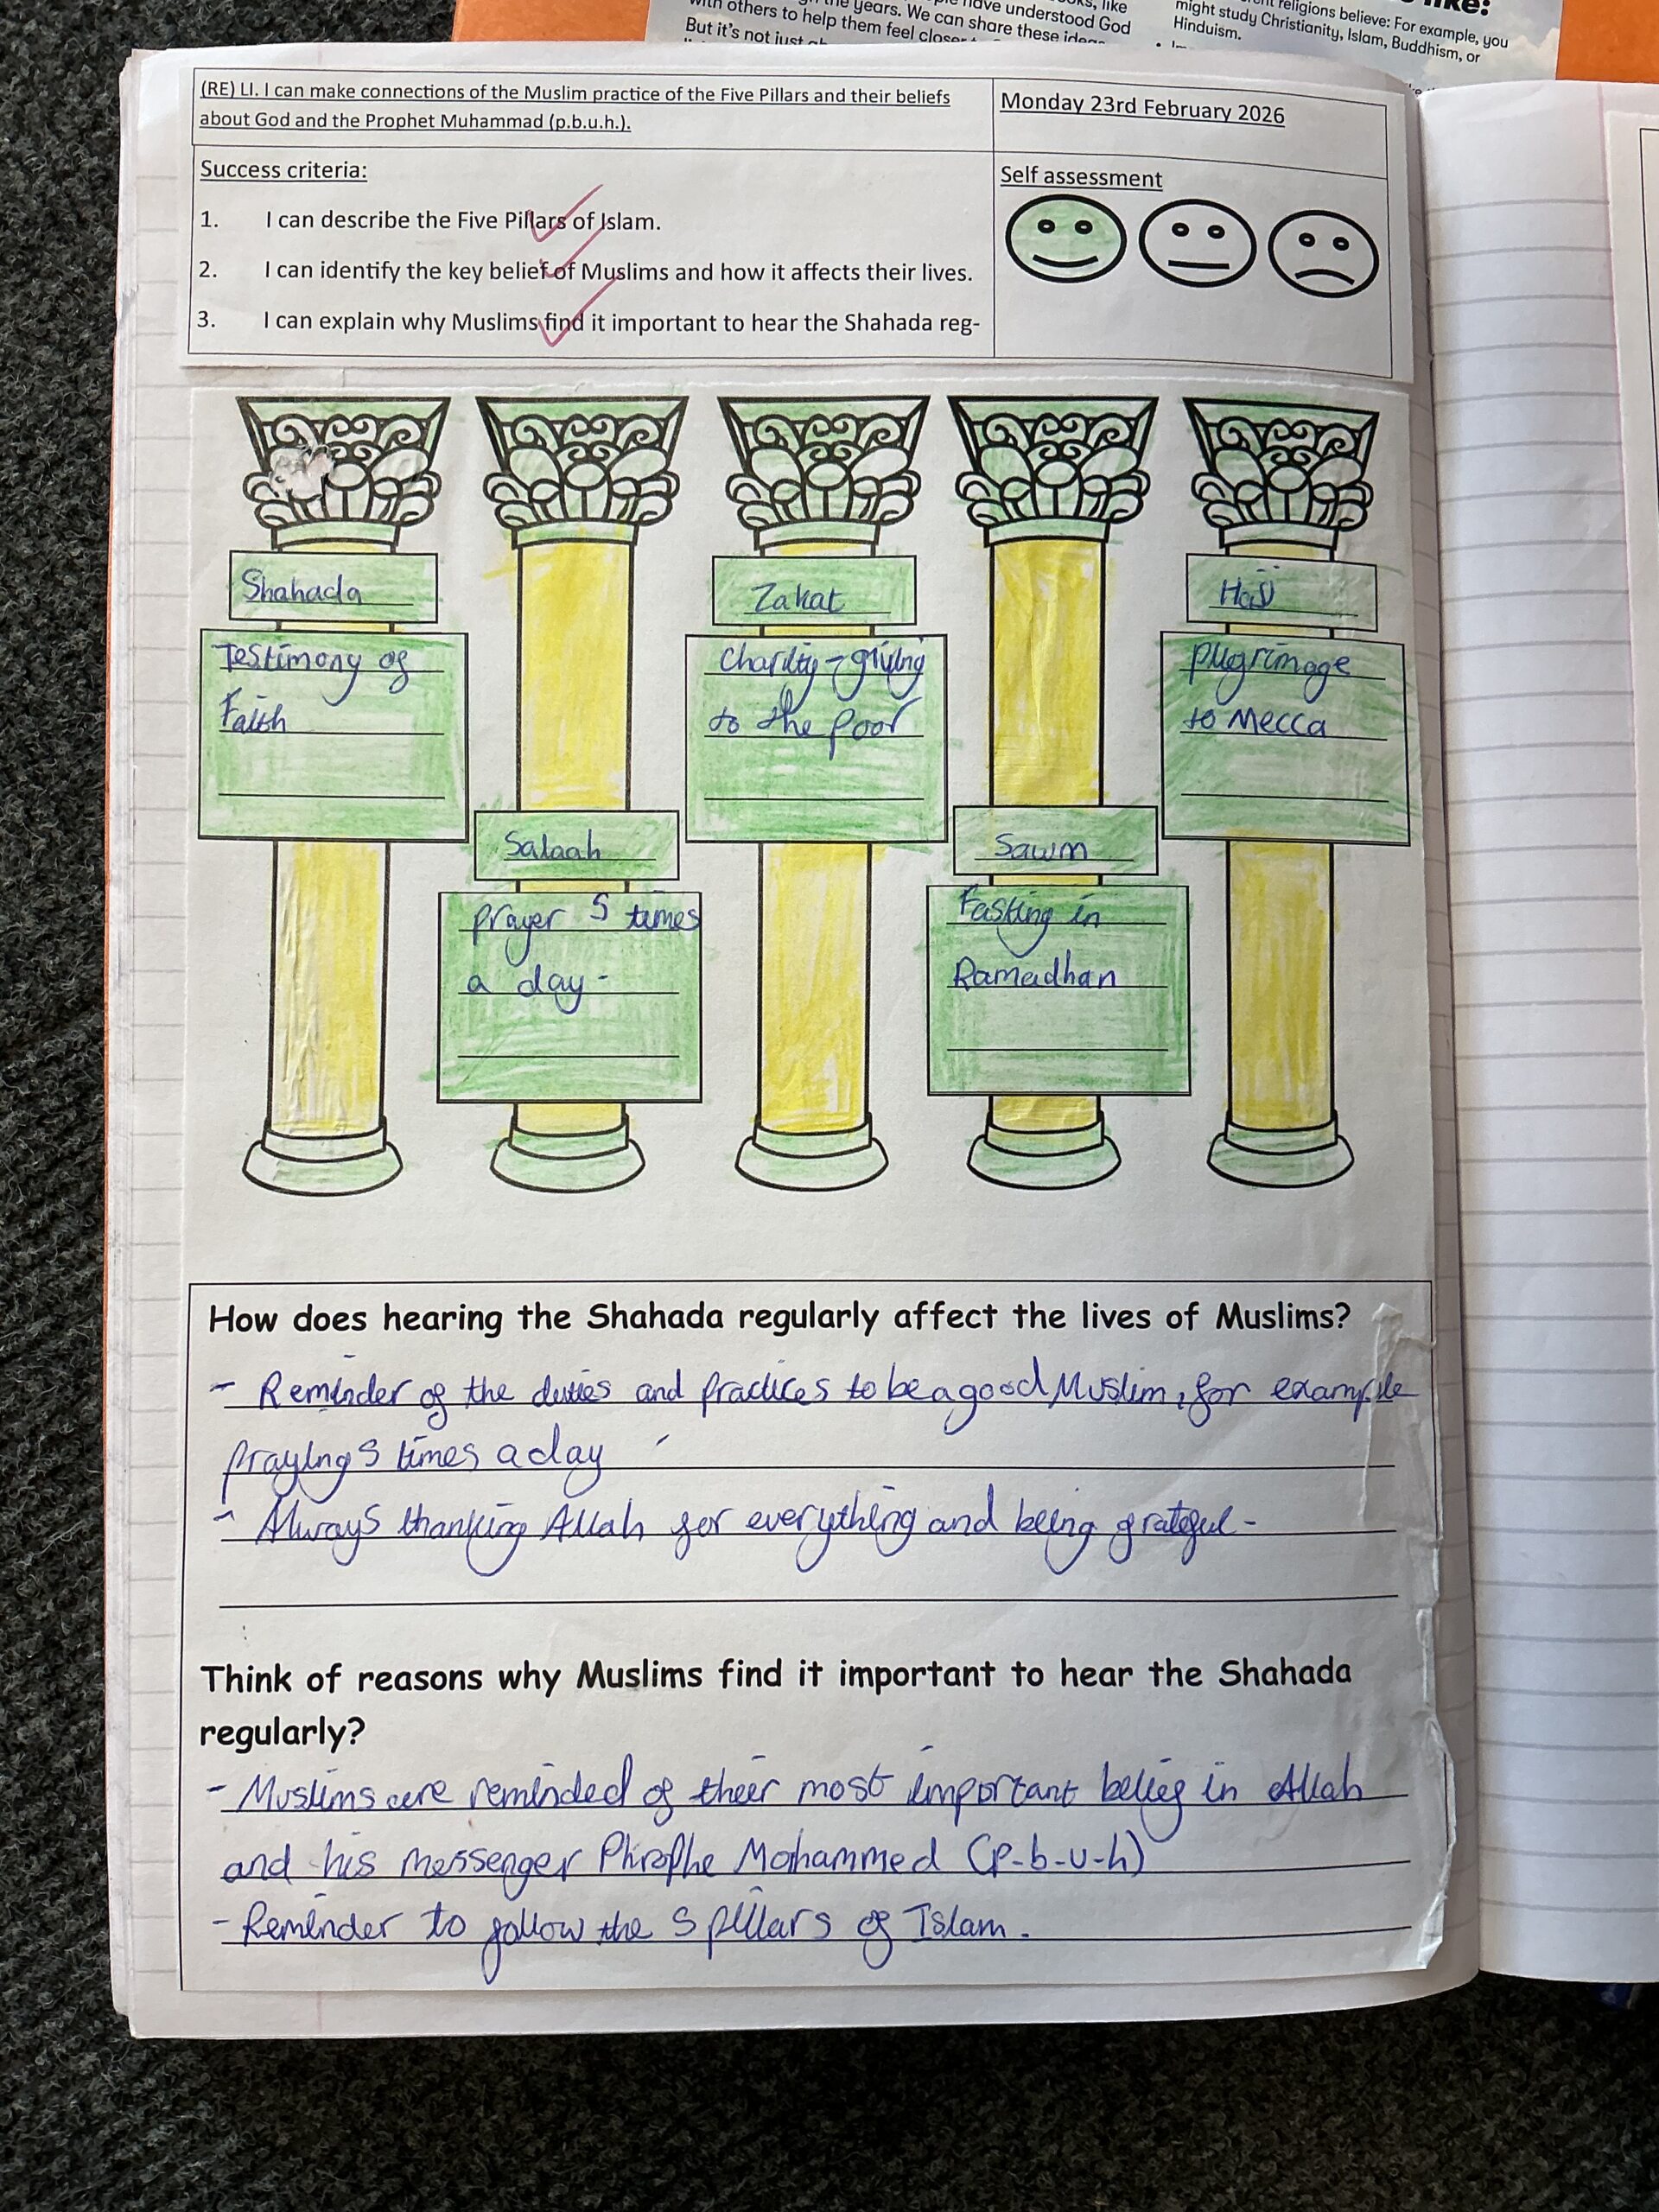 with others to help them feel closer
the years. We can share these ideas
have understood God
But it's not just
religions believe: For example, you
might study Christianity, Islam, Buddhism, or
Hinduism.
(RE) LI. I can make connections of the Muslim practice of the Five Pillars and their beliefs
about God and the Prophet Muhammad (p.b.u.h.).
Monday 23rd February 2026
Success criteria:
1. I can describe the Five Pillars of Islam.
2. I can identify the key belief of Muslims and how it affects their lives.
3. I can explain why Muslims find it important to hear the Shahada reg-
Self assessment
Shahada
Testimony of
Faith
Salaah
prayer 5 times
a day-
Zakat
Charity - giving
to the poor
Sawm
Fasting in
Ramadhan
Hajj
pilgrimage
to Mecca
How does hearing the Shahada regularly affect the lives of Muslims?
- Reminder of the duties and practices to be a good Muslim, for example
praying 5 times a day
- Always thanking Allah for everything and being grateful -
Think of reasons why Muslims find it important to hear the Shahada
regularly?
- Muslims are reminded of their most important belief in Allah
and his messenger Phrophe Mohammed (p-b-u-h)
- Reminder to follow the 5 pillars of Islam.